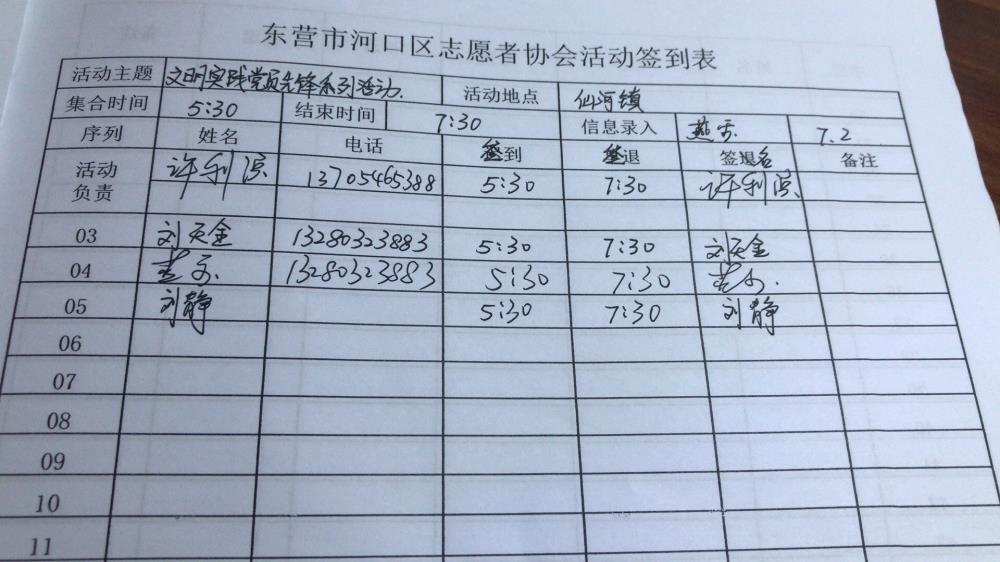 东营市河口区志愿者协会活动签到表
活动主题 文明实践党员先锋系列活动. 活动地点 仙河镇
集合时间 5:30 结束时间 7:30 信息录入 7.2
序列 姓名 电话 签到 签退 签退名 备注
活动负责 许利滨 13705465388 5:30 7:30 许利滨
03 刘天金 13280323883 5:30 7:30 刘天金
04 13280323883 5:30 7:30
05 刘静 5:30 7:30 刘静
06
07
08
09
10
11